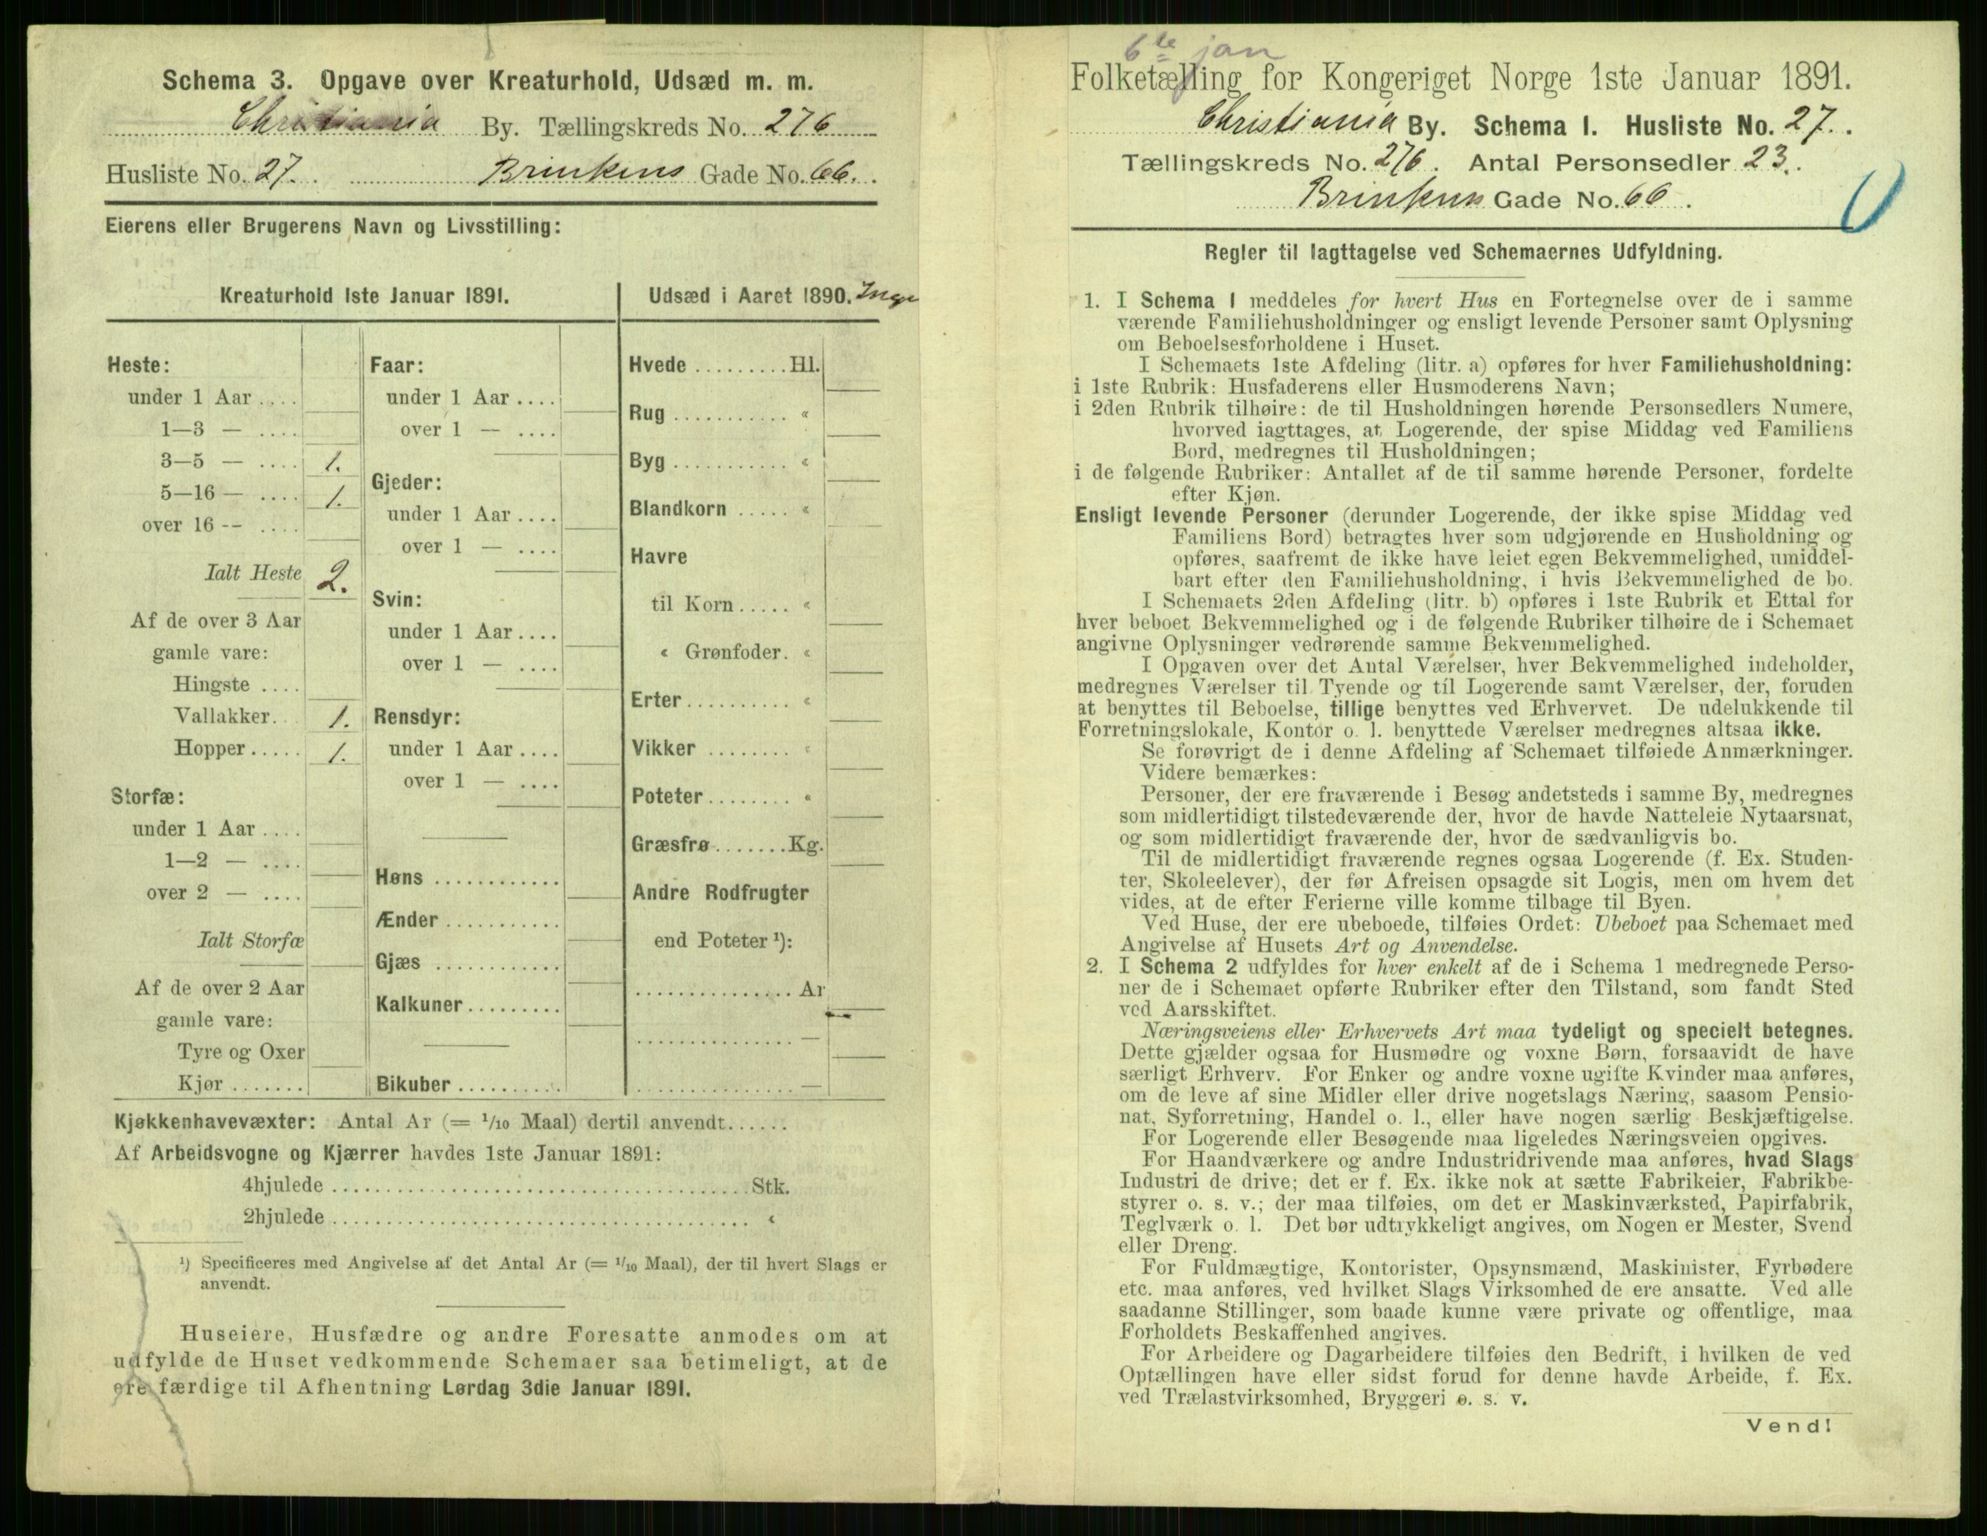 Schema 3. Opgave over Kreaturhold, Udsæd m. m.
Christiania By. Tællingskreds No. 276
Husliste No. 27. Brinkens Gade No. 66.
Eierens eller Brugerens Navn og Livsstilling:
Kreaturhold 1ste Januar 1891.
Heste:
under 1 Aar ....
1—3 — ....
3—5 — .... 1.
5—16 — .... 1.
over 16 -- ....
Ialt Heste 2.
Af de over 3 Aar
gamle vare:
Hingste ....
Vallakker. 1.
Hopper ..... 1.
Storfæ:
under 1 Aar ....
1—2 — ....
over 2 — ....
Ialt Storfæ
Af de over 2 Aar
gamle vare:
Tyre og Oxer
Kjør .......
Faar:
under 1 Aar ....
over 1 — ....
Gjeder:
under 1 Aar ....
over 1 — ....
Svin:
under 1 Aar ....
over 1 — ....
Rensdyr:
under 1 Aar ....
over 1 — ....
Høns ............
Ænder ...........
Gjæs ............
Kalkuner .........
Bikuber ..........
Udsæd i Aaret 1890. Inge
Hvede ......... Hl.
Rug ........... «
Byg ........... «
Blandkorn ..... «
Havre
til Korn ..... «
« Grønfoder. «
Erter .......... «
Vikker ........ «
Poteter ........ «
Græsfrø ....... Kg.
Andre Rodfrugter
end Poteter ¹):
............... Ar
............... —
............... —
Kjøkkenhavevæxter: Antal Ar (= 1/10 Maal) dertil anvendt......
Af Arbeidsvogne og Kjærrer havdes 1ste Januar 1891:
4hjulede ........................................ Stk.
2hjulede ........................................ «
¹) Specificeres med Angivelse af det Antal Ar (= 1/10 Maal), der til hvert Slags er
anvendt.
Huseiere, Husfædre og andre Foresatte anmodes om at
udfylde de Huset vedkommende Schemaer saa betimeligt, at de
ere færdige til Afhentning Lørdag 3die Januar 1891.
6te jan
Folketælling for Kongeriget Norge 1ste Januar 1891.
Christiania By. Schema I. Husliste No. 27.
Tællingskreds No. 276. Antal Personsedler 23.
Brinkens Gade No. 66.
Regler til Iagttagelse ved Schemaernes Udfyldning.
1. I Schema I meddeles for hvert Hus en Fortegnelse over de i samme
værende Familiehusholdninger og ensligt levende Personer samt Oplysning
om Beboelsesforholdene i Huset.
I Schemaets 1ste Afdeling (litr. a) opføres for hver Familiehusholdning:
i 1ste Rubrik: Husfaderens eller Husmoderens Navn;
i 2den Rubrik tilhøire: de til Husholdningen hørende Personsedlers Numere,
hvorved iagttages, at Logerende, der spise Middag ved Familiens
Bord, medregnes til Husholdningen;
i de følgende Rubriker: Antallet af de til samme hørende Personer, fordelte
efter Kjøn.
Ensligt levende Personer (derunder Logerende, der ikke spise Middag ved
Familiens Bord) betragtes hver som udgjørende en Husholdning og
opføres, saafremt de ikke have leiet egen Bekvemmelighed, umiddel-
bart efter den Familiehusholdning, i hvis Bekvemmelighed de bo.
I Schemaets 2den Afdeling (litr. b) opføres i 1ste Rubrik et Ettal for
hver beboet Bekvemmelighed og i de følgende Rubriker tilhøire de i Schemaet
angivne Oplysninger vedrørende samme Bekvemmelighed.
I Opgaven over det Antal Værelser, hver Bekvemmelighed indeholder,
medregnes Værelser til Tyende og til Logerende samt Værelser, der, foruden
at benyttes til Beboelse, tillige benyttes ved Erhvervet. De udelukkende til
Forretningslokale, Kontor o. l. benyttede Værelser medregnes altsaa ikke.
Se forøvrigt de i denne Afdeling af Schemaet tilføiede Anmærkninger.
Videre bemærkes:
Personer, der ere fraværende i Besøg andetsteds i samme By, medregnes
som midlertidigt tilstedeværende der, hvor de havde Natteleie Nytaarsnat,
og som midlertidigt fraværende der, hvor de sædvanligvis bo.
Til de midlertidigt fraværende regnes ogsaa Logerende (f. Ex. Studen-
ter, Skoleelever), der før Afreisen opsagde sit Logis, men om hvem det
vides, at de efter Ferierne ville komme tilbage til Byen.
Ved Huse, der ere ubeboede, tilføies Ordet: Ubeboet paa Schemaet med
Angivelse af Husets Art og Anvendelse.
2. I Schema 2 udfyldes for hver enkelt af de i Schema 1 medregnede Perso-
ner de i Schemaet opførte Rubriker efter den Tilstand, som fandt Sted
ved Aarsskiftet.
Næringsveiens eller Erhvervets Art maa tydeligt og specielt betegnes.
Dette gjælder ogsaa for Husmødre og voxne Børn, forsaavidt de have
særligt Erhverv. For Enker og andre voxne ugifte Kvinder maa anføres,
om de leve af sine Midler eller drive nogetslags Næring, saasom Pensio-
nat, Syforretning, Handel o. l., eller have nogen særlig Beskjæftigelse.
For Logerende eller Besøgende maa ligeledes Næringsveien opgives.
For Haandværkere og andre Industridrivende maa anføres, hvad Slags
Industri de drive; det er f. Ex. ikke nok at sætte Fabrikeier, Fabrikbe-
styrer o. s. v.; der maa tilføies, om det er Maskinværksted, Papirfabrik,
Teglværk o. l. Det bør udtrykkeligt angives, om Nogen er Mester, Svend
eller Dreng.
For Fuldmægtige, Kontorister, Opsynsmænd, Maskinister, Fyrbødere
etc. maa anføres, ved hvilket Slags Virksomhed de ere ansatte. Ved alle
saadanne Stillinger, som baade kunne være private og offentlige, maa
Forholdets Beskaffenhed angives.
For Arbeidere og Dagarbeidere tilføies den Bedrift, i hvilken de ved
Optællingen have eller sidst forud for denne havde Arbeide, f. Ex.
ved Trælastvirksomhed, Bryggeri o. s. v.
Vend!